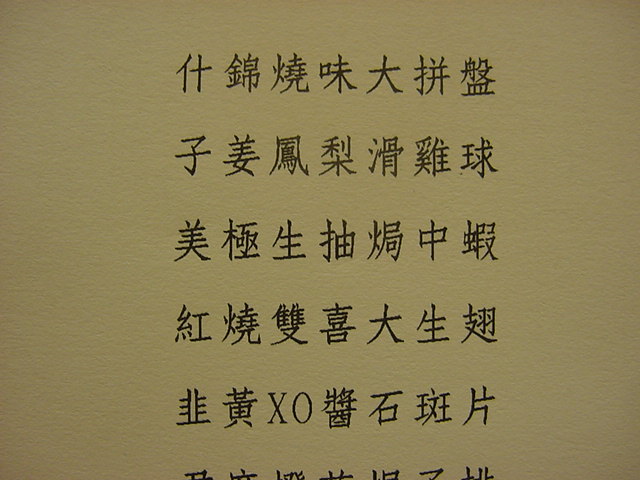 什錦燒味大拼盤
子姜鳳梨滑雞球
美極生抽焗中蝦
紅燒雙喜大生翅
韭黃XO醬石斑片